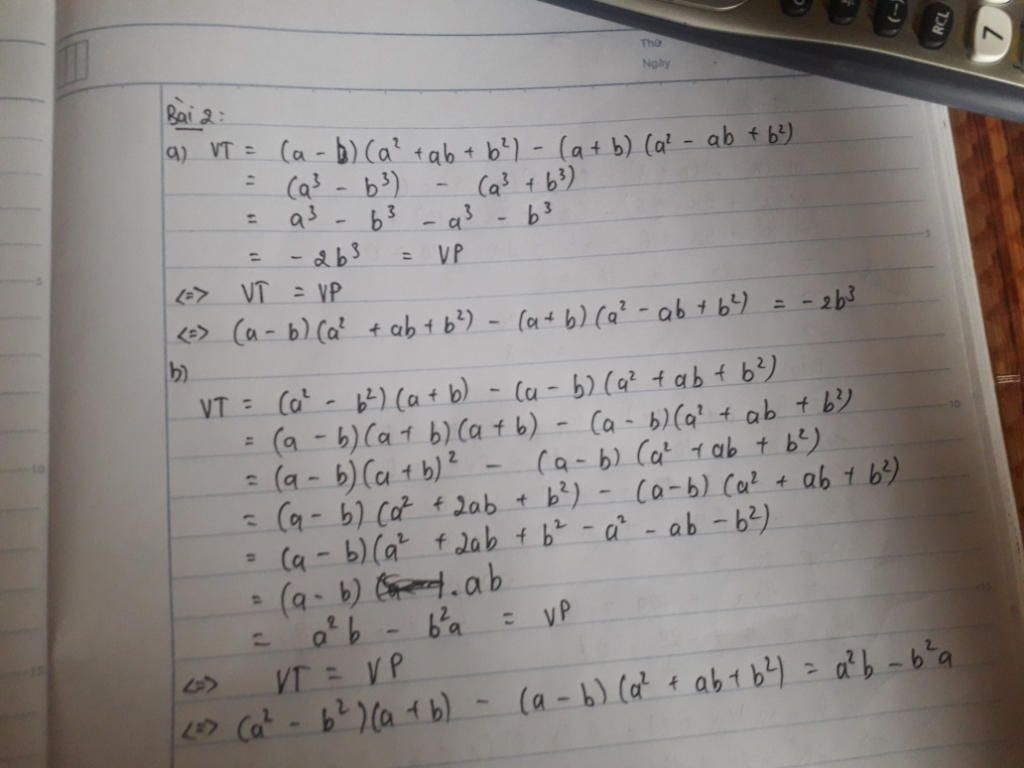 RCL
(-)
7
Thứ
Ngày
Bài 2:
a) VT = (a - b)(a² + ab + b²) - (a + b)(a² - ab + b²)
= (a³ - b³) - (a³ + b³)
= a³ - b³ - a³ - b³
= - 2b³ = VP
<=> VT = VP
<=> (a - b)(a² + ab + b²) - (a + b)(a² - ab + b²) = - 2b³
b)
VT = (a² - b²)(a + b) - (a - b)(a² + ab + b²)
= (a - b)(a + b)(a + b) - (a - b)(a² + ab + b²)
= (a - b)(a + b)² - (a - b)(a² + ab + b²)
= (a - b)(a² + 2ab + b²) - (a - b)(a² + ab + b²)
= (a - b)(a² + 2ab + b² - a² - ab - b²)
= (a - b) . ab
= a²b - b²a = VP
<=> VT = VP
<=> (a² - b²)(a + b) - (a - b)(a² + ab + b²) = a²b - b²a
5
10
15
5
10
15